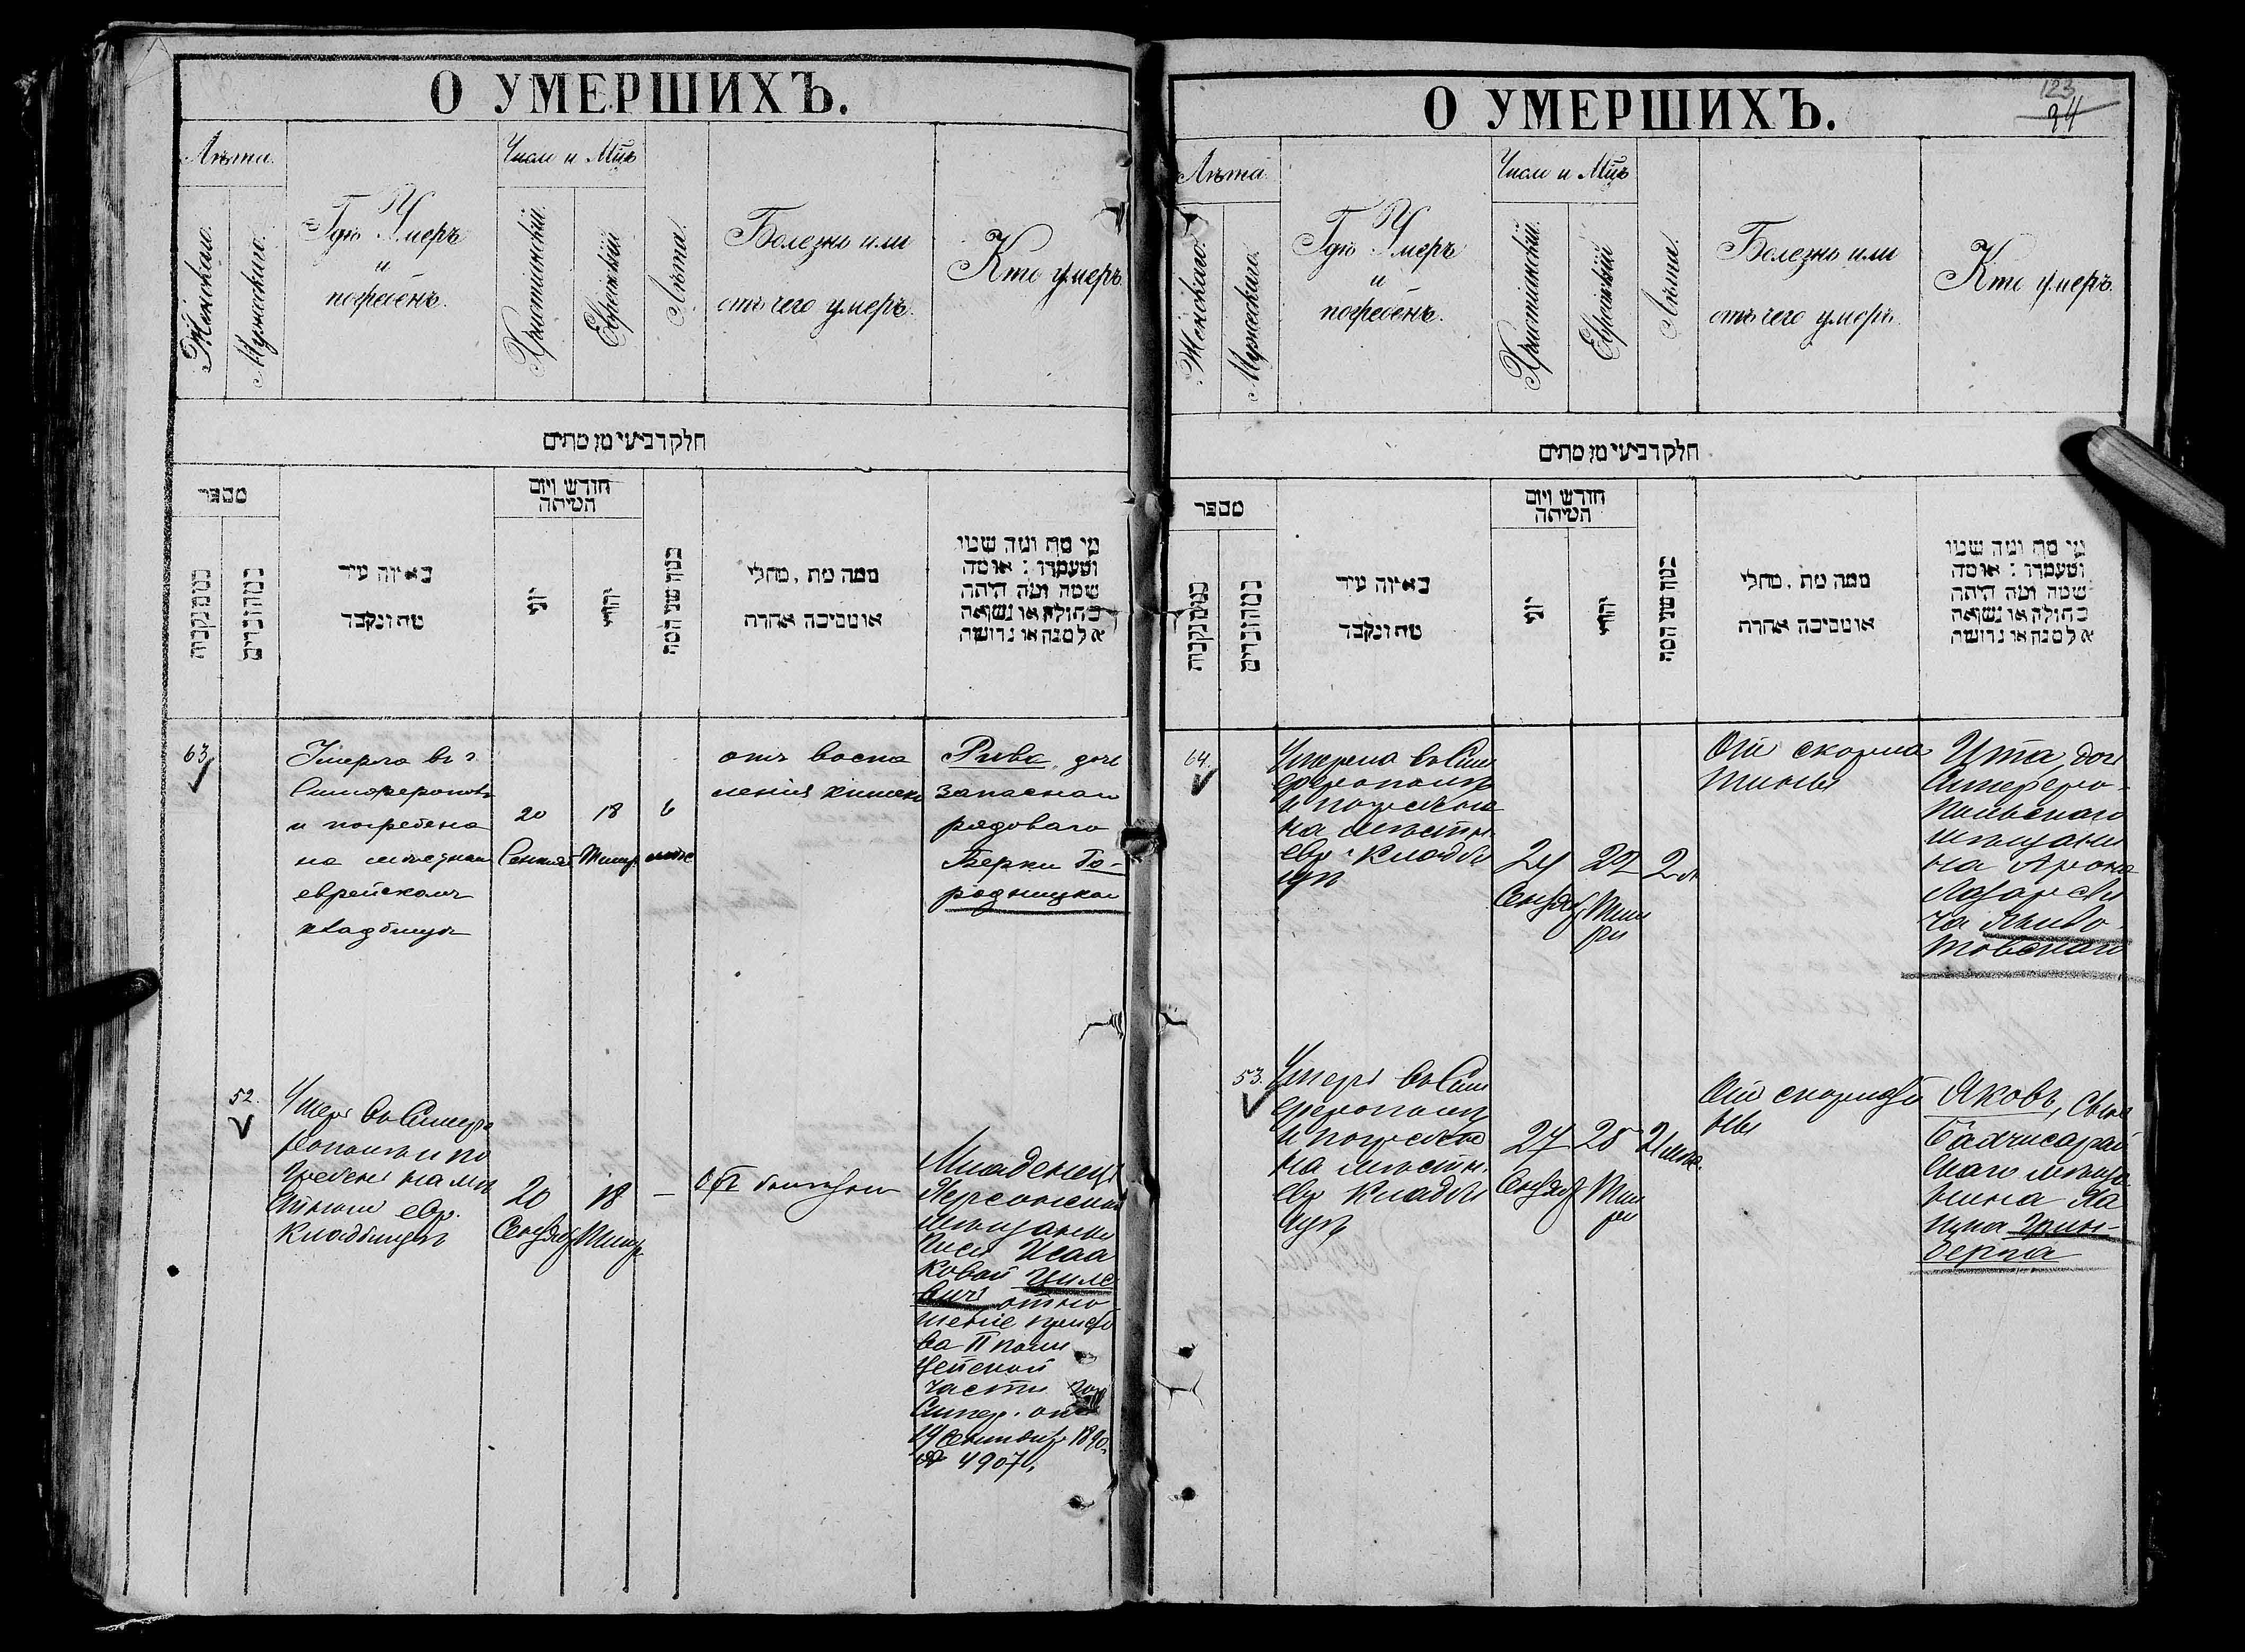 О УМЕРШИХЪ.
Лѣта.
Женскаго.
Мужескаго.
Гдѣ Умеръ
и
погребенъ.
Числ и Мцъ
Христіанскій.
Еврейскій
Лѣта.
Болезнь или
отъ чего умеръ.
Кто умеръ.
חלק רביעי מן מתים
מספר
ממין נקבות
ממין זכרים
באיזה עיר
מת ונקבר
חודש ויום
המיתה
יוני
יהודי
כמה שני המת
ממה מת, מחלי
או מסיבה אחרת
מי מת ומה שמו
ומעמדו : או מה
שמה ומה היתה
בתולה או נשואה
אלמנה או גרושה
63
Умерла въ г.
Симферополѣ
и погребена
на мѣстномъ
еврейскомъ
кладбищѣ
20
Сентяб
18
Тишр.
6
мѣс
отъ воспа
ленія кишекъ
Рива, дочь
запаснаго
рядоваго
Берки Го-
родницкаго
52.
Умеръ въ Симфе
рополѣ и по
гребенъ на мѣ
стномъ евр.
кладбищѣ
20
Сентяб
18
Тишр.
—
Младенецъ
Херсонской
мѣщанки
Исаа
ковой
отно
шеніе приста
ва II поли
цейской
части
Симфер. отъ
19 Сентября 1890
№ 4907.
О УМЕРШИХЪ.
123
94
Лѣта.
Женскаго.
Мужескаго.
Гдѣ Умеръ
и
погребенъ.
Числ и Мцъ
Христіанскій.
Еврейскій
Лѣта.
Болезнь или
отъ чего умеръ.
Кто умеръ.
חלק רביעי מן מתים
מספר
ממין נקבות
ממין זכרים
באיזה עיר
מת ונקבר
חודש ויום
המיתה
יוני
יהודי
כמה שני המת
ממה מת, מחלי
או מסיבה אחרת
מי מת ומה שמו
ומעמדו : או מה
שמה ומה היתה
בתולה או נשואה
אלמנה או גרושה
64.
Умерла въ Сим
ферополѣ
и погребена
на мѣстн.
евр. кладби
щѣ
24
Сентяб
22
Тиш
ри
2 л
От скарла
тины
Ита, доч
Симферо-
польскаго
мѣщани
на Арона
Лазореви
ча
53.
Умеръ въ Сим
ферополѣ
и погребенъ
на мѣстн.
евр кладби
щѣ
27
Сентяб
25
Тиш
ри
От скарлати
ны
Яковъ, сынъ
Бахчисарай
скаго мѣща
нина Ха
има Грин-
берга